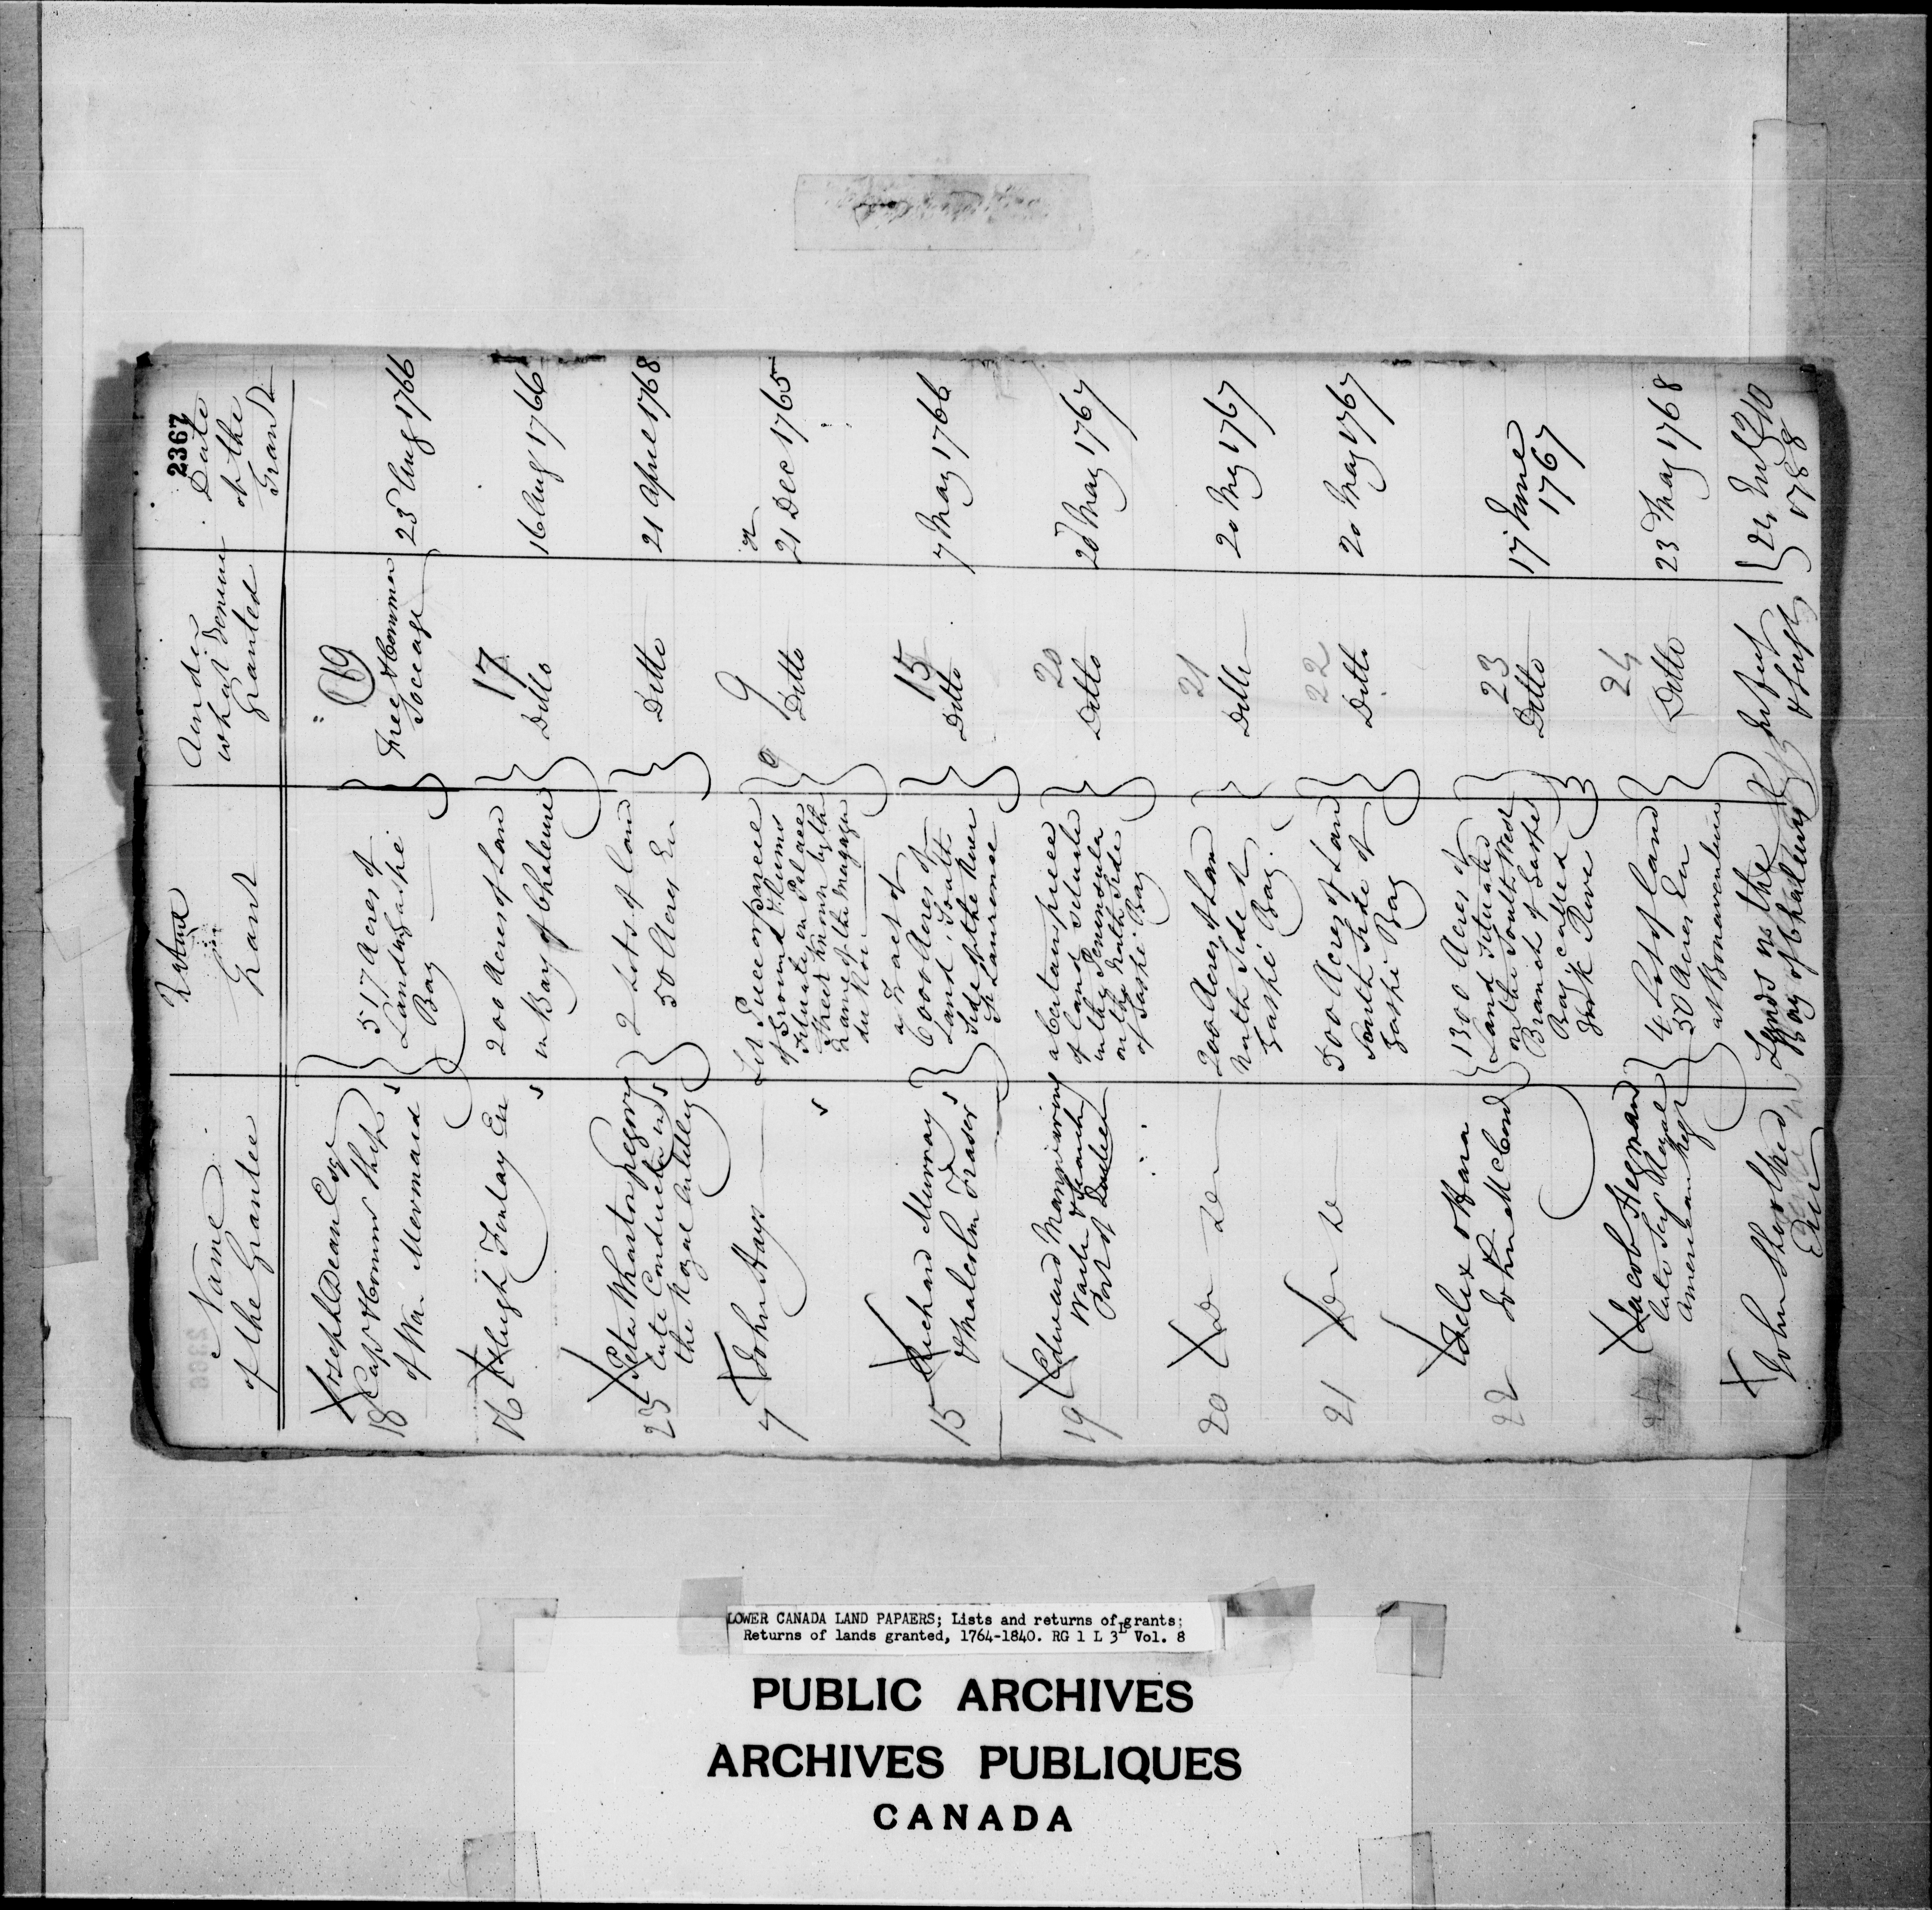 2367
Name
of the Grantee
Nature
Grant
Under
what Tenure
Granted
Date
of the
Grant
18
Joseph Dean Esqr
Capt & Comr Ship
of War Mermaid
517 Acres of
Land in Gaspé
Bay
19
Free & Common
Soccage
23 Aug 1766
16
Hugh Finlay Esr
200 Acres of Lan
in Bay of Chaleurs
17
Ditto
16 Aug 1766
23
Peter Wharton
Late Conductor in
the Royal Artillery
2 Lots of Land
50 Acres Ea
Ditto
21 April 1768
7
John Hays
Piece or Parcel
of Ground
Situate on Palace
Street known by the
name of the Magazin
du Roi
9
Ditto
21 Dec 1765
15
Richard Murray
& Malcolm Fraser
a Tract of
6000 Acres of
Land, South
Side of the River
St Laurence
15
Ditto
7 May 1766
19
Edward Manwaring
Port of Quebec
a Certain piece
of land situate
in the Peninsula
on the North Side
of Gaspé Bay
20
Ditto
20 May 1767
20
Do Do
2000 Acres of Lan
North Side of
Gaspé Bay.
21
Ditto
20 May 1767
21
Do Do
500 Acres of Land
South Side of
Gaspé Bay
22
Ditto
20 May 1767
22
Felix O Hara
John McCord
1300 Acres of
Land situated
on the South West
Branch of Gaspé
Bay, called
York River
23
Ditto
17 June
1767
Jacob Hegman
Late Serj Royal
American Regt
4 Lots of Land
50 Acres Ea
at Bonaventure
24
Ditto
23 May 1768
John Shoolbred
Esqr
Lands in the
Bay of Chaleurs
In feut
& heufs
24 July
1788
LOWER CANADA LAND PAPAERS; Lists and returns of grants;
Returns of lands granted, 1764-1840. RG 1 L 3L Vol. 8
PUBLIC ARCHIVES
ARCHIVES PUBLIQUES
CANADA